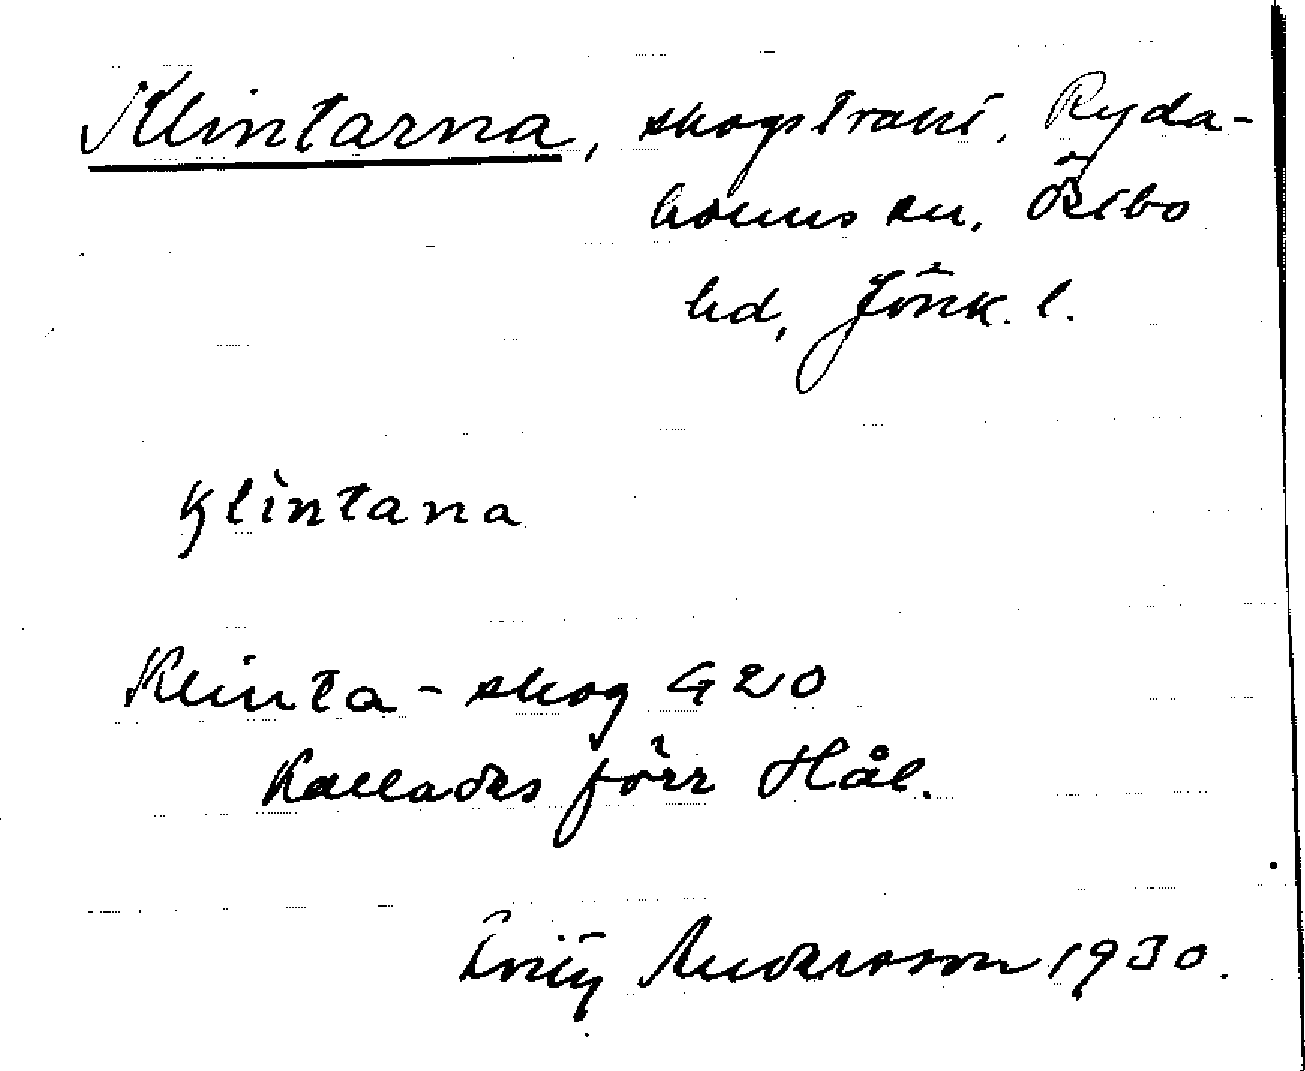 Klintarna, skogstrakt, Ryda-
holms sn. Östbo
hd, Jönk. l.
Klintana
Klinta-skog G20
Kallades förr Hål.
Andersson 1930.